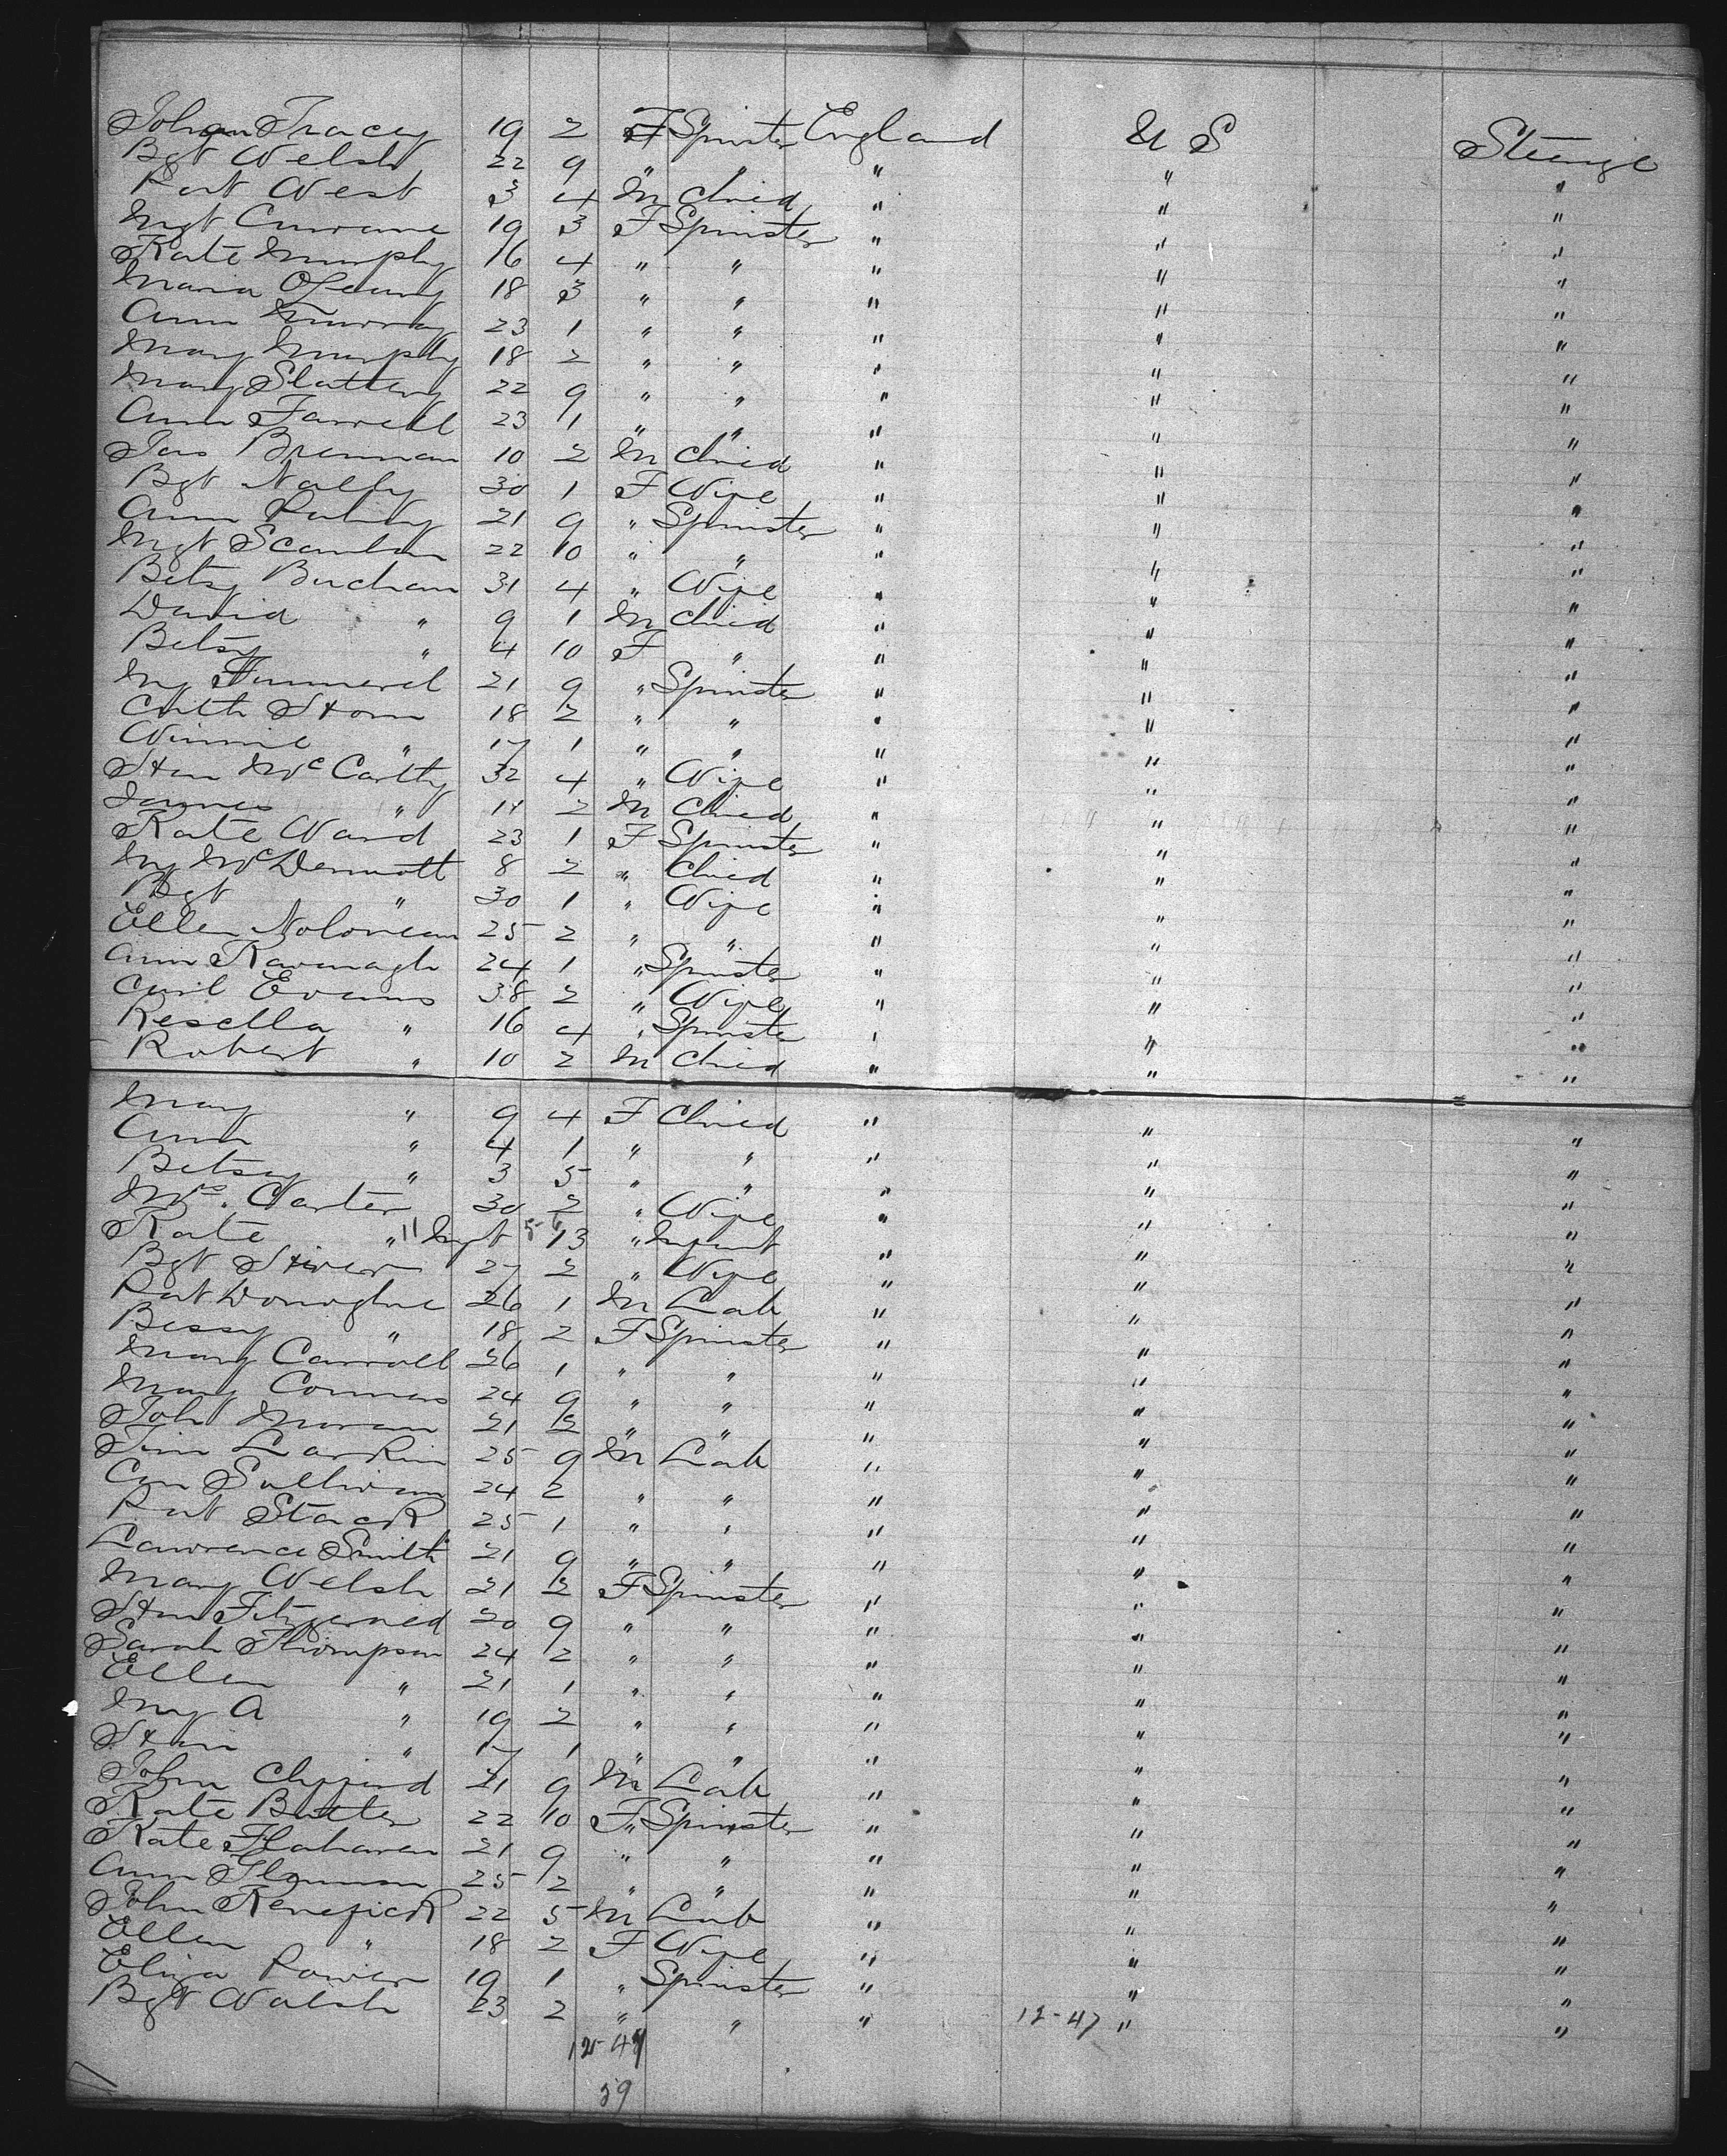 Johan Tracey 19 2 F Spinster England U S Steerage
Bgt Welsh 22 9 " " " " "
Pat West 3 4 M Child " " "
Mgt Currane 19 3 F Spinster " " "
Kate Murphy 16 4 " " " " "
Maria O'Leary 18 3 " " " " "
Ann Murray 23 1 " " " " "
Mary Murphy 18 2 " " " " "
Mary Slattery 22 9 " " " " "
Ann Farrell 23 1 " " " " "
Jas Brennan 10 2 M Child " " "
Bgt Nally 30 1 F Wife " " "
Ann 21 9 " Spinster " " "
Mgt Scanlan 22 10 " " " " "
Betsy Buchan 31 4 " Wife " " "
David " 9 1 M Child " " "
Betsy " 4 10 F " " " "
My 21 9 " Spinster " " "
Cath 18 2 " " " " "
Winnie " 17 1 " " " " "
Han McCarthy 32 4 " Wife " " "
James " 11 2 M Child " " "
Kate Ward 23 1 F Spinster " " "
My McDermott 8 2 " Child " " "
Bgt " 30 1 " Wife " " "
Ellen 25 2 " " " " "
Ann Kavanagh 24 1 " Spinster " " "
Carl Evans 38 2 " Wife " " "
Resella " 16 4 " Spinster " " "
Robert " 10 2 M Child " " "
Mary " 9 4 F Child " " "
Ann " 4 1 " " " " "
Betsey " 3 5 " " " " "
Mrs. Carter 30 2 " Wife " " "
Kate " 11 Mgt 13 " Infant " " "
Bgt 27 2 " Wife " " "
Pat Donoghue 26 1 M Lab " " "
Bessy " 18 2 F Spinster " " "
Mary Carroll 26 1 " " " " "
Mary Connors 24 9 " " " " "
Joh Moran 21 2 " " " " "
Jim Larkin 25 9 M Lab " " "
Con Sullivan 24 2 " " " " "
Pat Stack 25 1 " " " " "
Lawrence Smith 21 9 " " " " "
Mary Welsh 21 2 F Spinster " " "
Han Fitzgerald 20 9 " " " " "
Sarah Thompson 24 2 " " " " "
Ellen " 21 1 " " " " "
My A " 19 2 " " " " "
Han " 17 1 " " " " "
John Clifford 21 9 M Lab " " "
Kate Butler 22 10 F " Spinster " " "
Kate Flahaven 21 9 " " " " "
Ann 25 2 " " " " "
John Kenefick 22 5 M Lab " " "
Ellen " 18 2 F Wife " " "
Eliza Power 19 1 " Spinster " " "
Bgt Walsh 23 2 " " " 12-47 " "
12-47
59